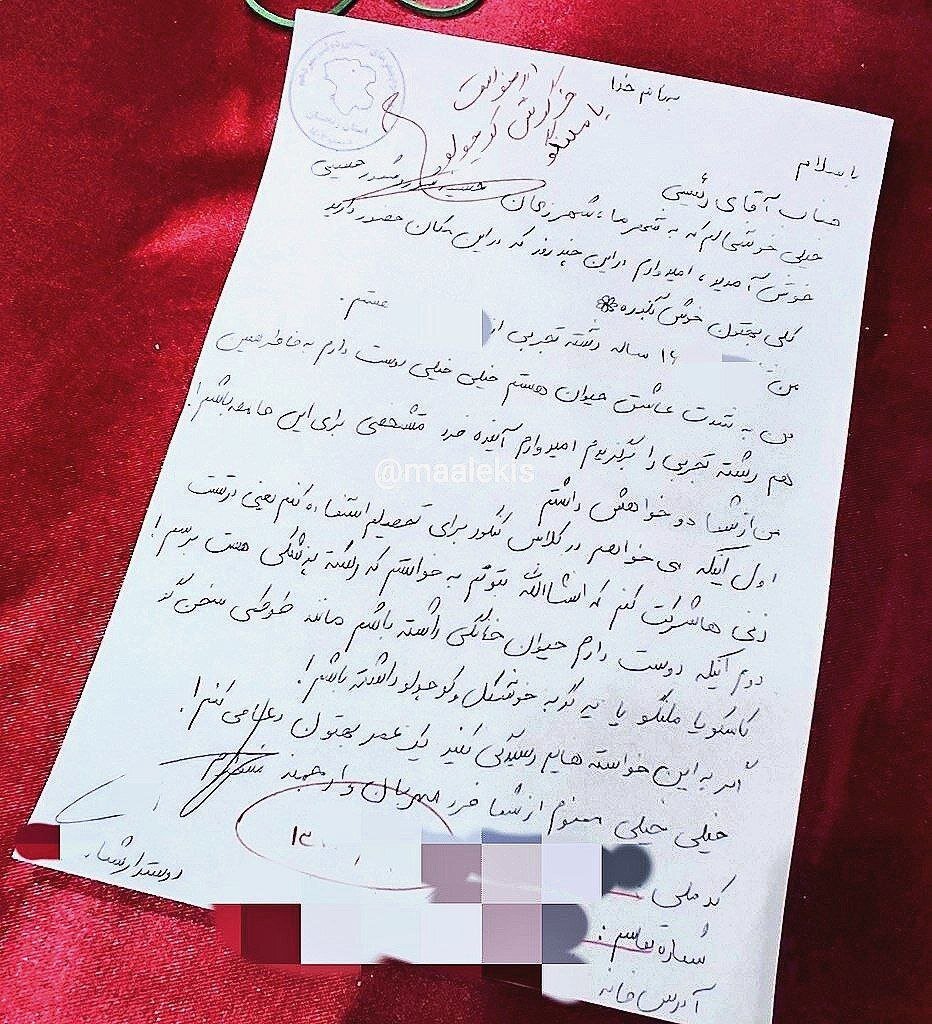 بنام خدا
با سلام
جناب آقای رئیسی
خیلی خوشحالم که به شهر ما، شهر زنجان
خوش آمدید، امیدوارم در این چند روز که در این مکان حضور دارید
کلی بهتون خوش بگذره
من ۱۶ ساله رشته تجربی از هستم.
من به شدت عاشق حیوان هستم خیلی خیلی دوست دارم به خاطر همین
هم رشته تجربی را برگزیدم امیدوارم آینده فرد مشخصی برای این جامعه باشم!
من از شما دو خواهش داشتم
اول اینکه می خواهم در کلاس کنکور برای تحصیلم استفاده کنم یعنی در تست
زنی ها شرکت کنم که انشاالله بتونم به خواستم که رشته پزشکی هست برسم!
دوم اینکه دوست دارم حیوان خانگی داشته باشم مانند طوطی سخن گو
کاسکو یا ملنگو یا یه گربه خوشگل و کوچولو داشته باشم!
اگر به این خواسته هایم رسیدگی کنید یک عمر بهتون دعا می کنم!
خیلی خیلی ممنونم از شما فرد مهربان و ارجمند
دوستدار شما
کد ملی:
شماره تماس:
آدرس خانه
خرگوش کوچولو
یا ملنگو
استان زنجان
@maalekis